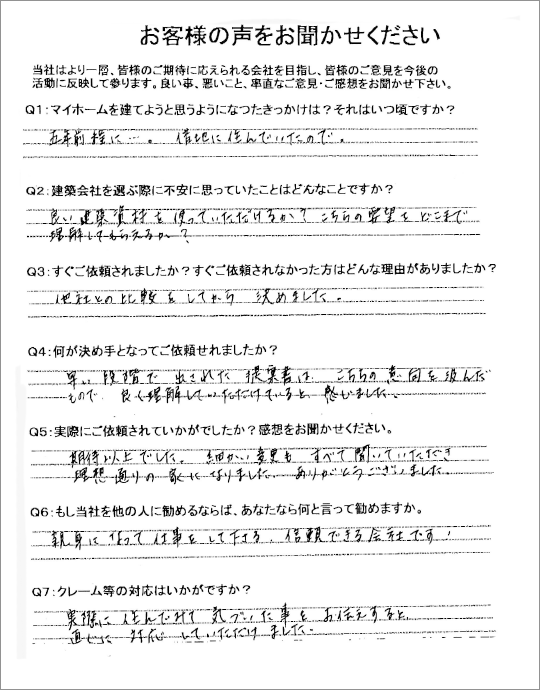 お客様の声をお聞かせください
当社はより一層、皆様のご期待に応えられる会社を目指し、皆様のご意見を今後の
活動に反映して参ります。良い事、悪いこと、率直なご意見・ご感想をお聞かせ下さい。
Q1：マイホームを建てようと思うようになつたきっかけは？それはいつ頃ですか？
五年前程に…。借地に住んでいたので。
Q2：建築会社を選ぶ際に不安に思っていたことはどんなことですか？
良い建築資材を使っていただけるか？こちらの要望をどこまで
理解してもらえるか？
Q3：すぐご依頼されましたか？すぐご依頼されなかった方はどんな理由がありましたか？
他社との比較をしてから決めました。
Q4：何が決め手となってご依頼せれましたか？
早い段階で出された提案書は、こちらの意向を汲んだ
もので、良く理解していただけていると感じました。
Q5：実際にご依頼されていかがでしたか？感想をお聞かせください。
期待以上でした。細かい変更もすべて聞いていただき
理想通りの家になりました。ありがとうございました。
Q6：もし当社を他の人に勧めるならば、あなたなら何と言って勧めますか。
親身になって仕事をして下さる、信頼できる会社です！
Q7：クレーム等の対応はいかがですか？
実際に住んでみて気づいた事をお伝えすると、
直ぐに対応していただけました。